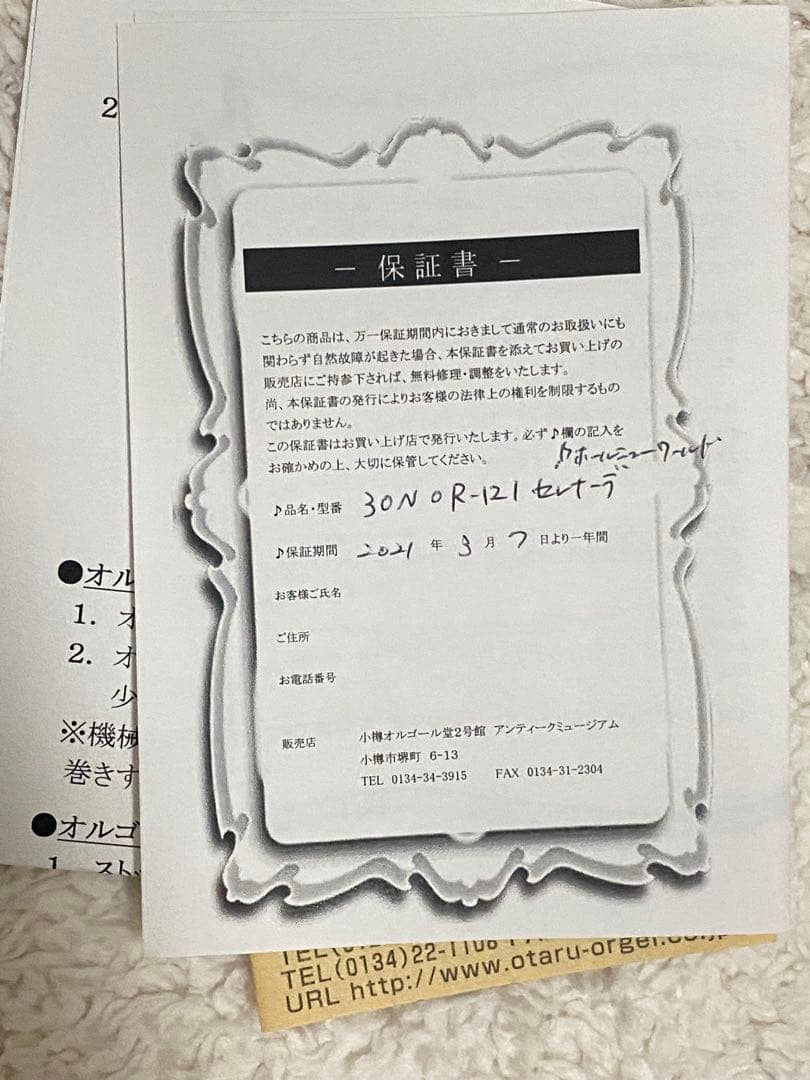 2
― 保証書 ―
こちらの商品は、万一保証期間内におきまして通常のお取扱いにも
関わらず自然故障が起きた場合、本保証書を添えてお買い上げの
販売店にご持参下されば、無料修理・調整をいたします。
尚、本保証書の発行によりお客様の法律上の権利を制限するもの
ではありません。
この保証書はお買い上げ店で発行いたします。必ず♪欄の記入を
お確かめの上、大切に保管してください。
♪ホールニューワールド
♪品名・型番 30N OR-121 セレナーデ
♪保証期間 2021 年 3 月 7 日より一年間
お客様ご氏名
ご住所
お電話番号
販売店 小樽オルゴール堂2号館 アンティークミュージアム
小樽市堺町 6-13
TEL 0134-34-3915 FAX 0134-31-2304
●オル
1. オ
2. オ
少
※機械
巻きす
●オルゴ
1 スト
TEL(0134)22-1108
URL http://www.otaru-orgel.co.jp